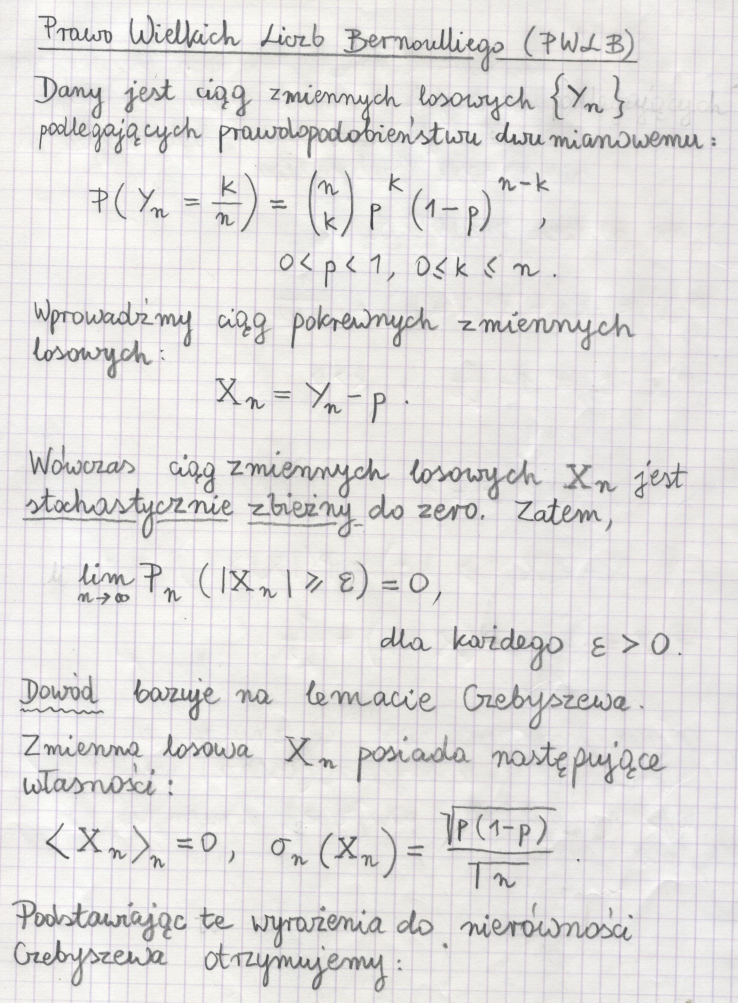 Prawo Wielkich Liczb Bernoulliego (PWLB)
Dany jest ciąg zmiennych losowych {Yₙ}
podlegających prawdopodobieństwu dwumianowemu:
P(Yₙ = k/n) = (n k) pᵏ (1-p)ⁿ⁻ᵏ,
0 < p < 1, 0 ≤ k ≤ n.
Wprowadźmy ciąg pokrewnych zmiennych
losowych:
Xₙ = Yₙ - p.
Wówczas ciąg zmiennych losowych Xₙ jest
stochastycznie zbieżny do zero. Zatem,
lim n→∞ Pₙ (|Xₙ| ≥ ε) = 0,
dla każdego ε > 0.
Dowód bazuje na lemacie Czebyszewa.
Zmienna losowa Xₙ posiada następujące
własności:
⟨Xₙ⟩ₙ = 0, σₙ(Xₙ) = √p(1-p) / √n.
Podstawiając te wyrażenia do nierówności
Czebyszewa otrzymujemy: